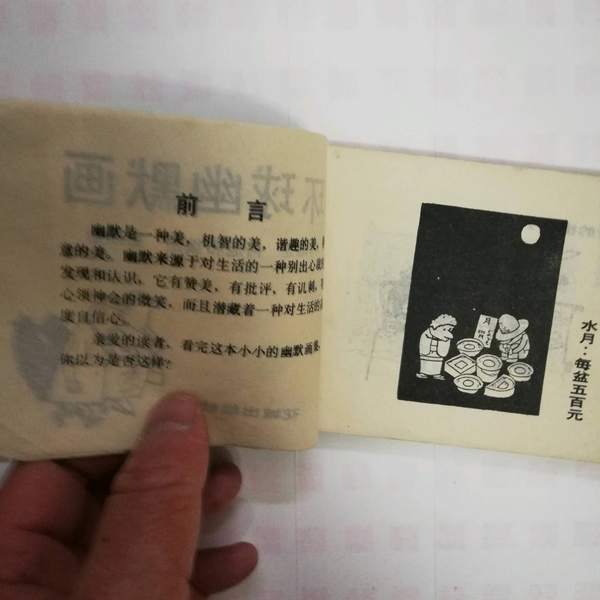 前言
幽默是一种美，机智的美，谐趣的美，
意的美。幽默来源于对生活的一种别出心
发现和认识，它有赞美，有批评，有讥刺，
心领神会的微笑，而且潜藏着一种对生活的
度自信心。
亲爱的读者，看完这本小小的幽默画
你以为是否这样？
环球幽默画
水月：每盆五百元